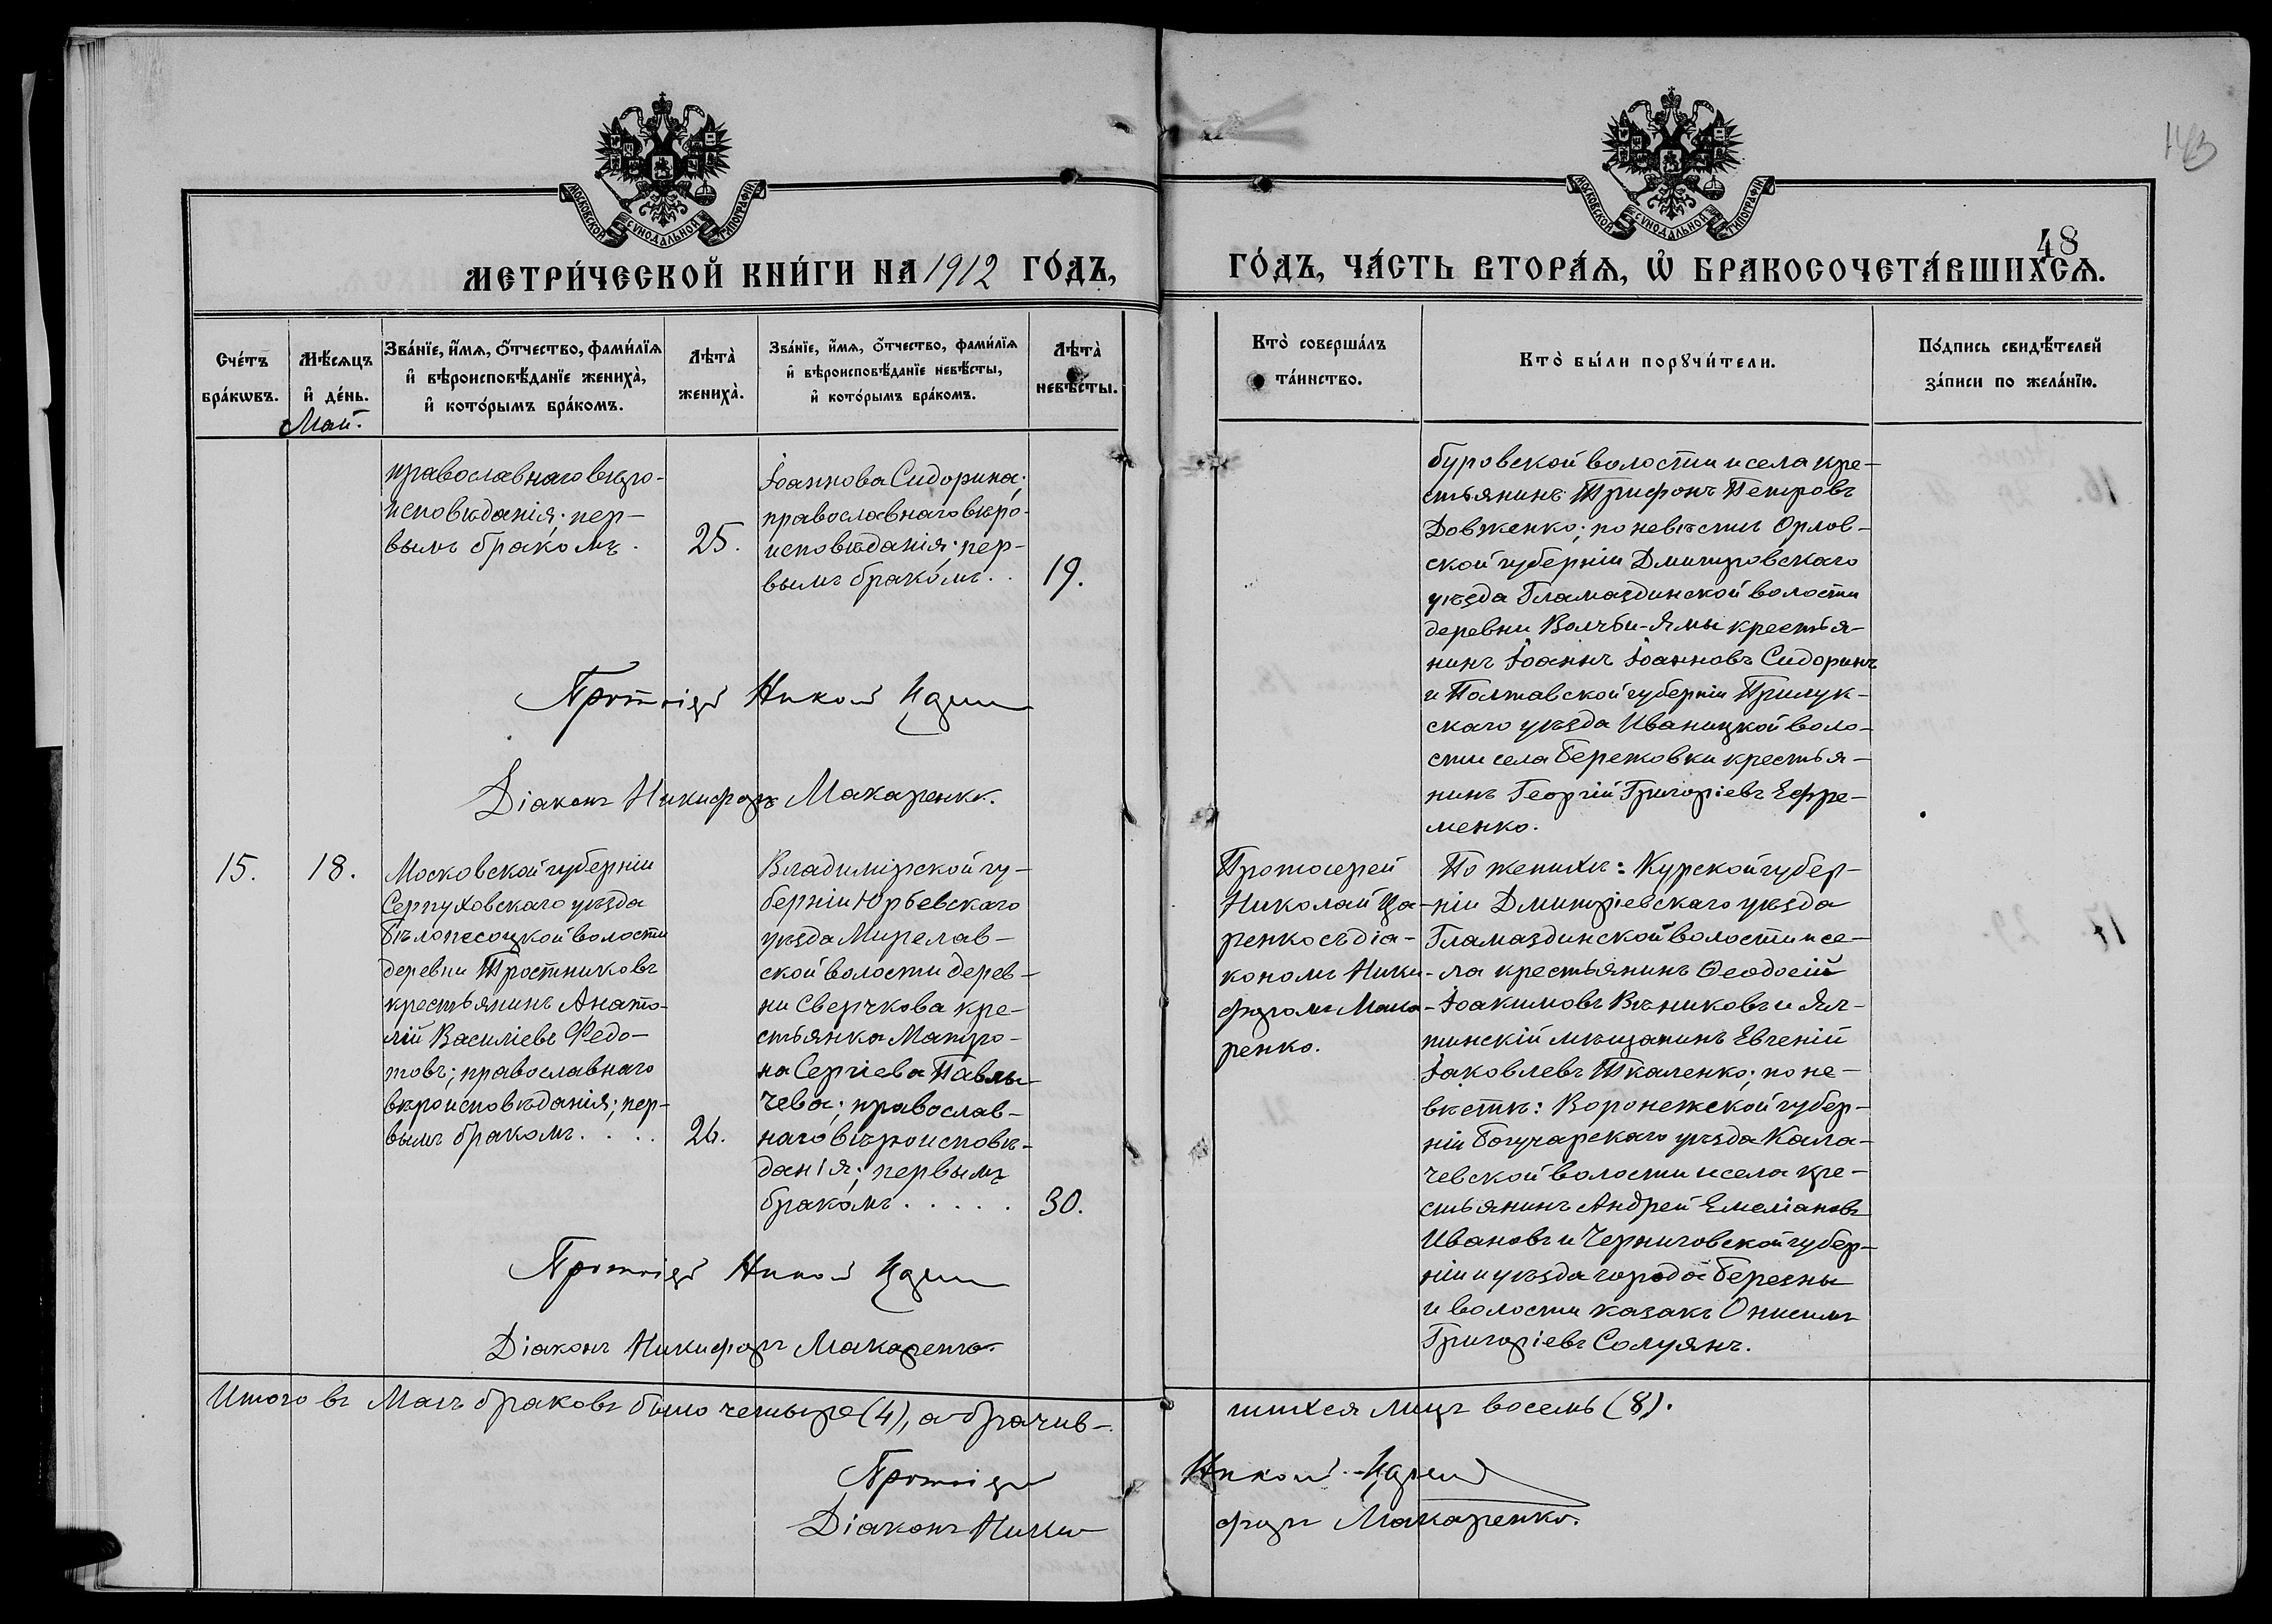 143
48
МОСКОВСКОЙ СѴНОДАЛЬНОЙ ТИПОГРАФІИ
МОСКОВСКОЙ СѴНОДАЛЬНОЙ ТИПОГРАФІИ
МЕТРИ́ЧЕСКОЙ КНИ́ГИ НА 1912 ГО́ДЪ,
ГО́ДЪ, ЧА́СТЬ ВТОРА́Ѧ, Ѽ БРАКОСОЧЕТА́ВШИХСѦ.
Сче́тъ
бра́кѡвъ.
Мѣ́сяцъ
и҆ де́нь.
Май.
Зва́нїе, и҆́мѧ, ѻ҆́тчество, фами́лїѧ
и҆ вѣроисповѣ́данїе жениха̀,
и҆ кото́рымъ бра́комъ.
Лѣта̀
жениха̀.
Зва́нїе, и҆́мѧ, ѻ҆́тчество, фами́лїѧ
и҆ вѣроисповѣ́данїе невѣ́сты,
и҆ кото́рымъ бра́комъ.
Лѣта̀
невѣ́сты.
Кто̀ соверша́лъ
та́инство.
Кто̀ бы́ли порꙋчи́тели.
По́дпись свидѣ́телей
за́писи по жела́нїю.
православнаго вѣро-
исповѣданія; пер-
вымъ бракомъ.
25.
Іоаннова Сидорина;
православнаго вѣро-
исповѣданія; пер-
вымъ бракомъ..
19.
буровской волости и села кре-
стьянинъ Трифонъ Петровъ
Довженко; по невѣстѣ Орлов-
ской губерніи Дмитровскаго
уѣзда Гламаздинской волости
деревни Волчьи-Ямы крестья-
нинъ Іоаннъ Іоанновъ Сидоринъ
и Полтавской губерніи Прилук-
скаго уѣзда Иваницкой воло-
сти села Бережовки крестья-
нинъ Георгій Григоріевъ Ефре-
менко.
Протоіерей Николай Царенко
Діаконъ Никифоръ Макаренко.
15.
18.
Московской губерніи
Серпуховскаго уѣзда
Бѣлопесоцкой волости
деревни Тростниковъ
крестьянинъ Анато-
лій Василіевъ Федо-
товъ; православнаго
вѣроисповѣданія; пер-
вымъ бракомъ. . . .
26.
Владимірской гу-
берніи Юрьевскаго
уѣзда Мирслав-
ской волости дерев-
ни Сверчкова кре-
стьянка Матро-
на Сергіева Павлы-
чева; православ-
наго вѣроисповѣ-
данія; первымъ
бракомъ. . . . .
30.
Протоіерей
Николай Ца-
ренко съ діа-
кономъ Ники-
форомъ Мака-
ренко.
По женихѣ: Курской губер-
ніи Дмитріевскаго уѣзда
Гламаздинской волости и се-
ла крестьянинъ Ѳеодосій
Іоакимовъ Вѣниковъ и Ял-
тинскій мѣщанинъ Евгеній
Іаковлевъ Ткаленко; по не-
вѣстѣ: Воронежской губер-
ніи Богучарскаго уѣзда Кала-
чевской волости и села кре-
стьянинъ Андрей Емеліановъ
Ивановъ и Черниговской губер-
ніи и уѣзда города Березны
и волости казакъ Онисимъ
Григоріевъ Солуянъ.
Протоіерей Николай Царенко
Діаконъ Никифоръ Макаренко.
Итого въ Маѣ браковъ было четыре (4), а брачив-
шихся лицъ восемь (8).
Протоіерей Николай Царенко
Діаконъ Никифоръ Макаренко.